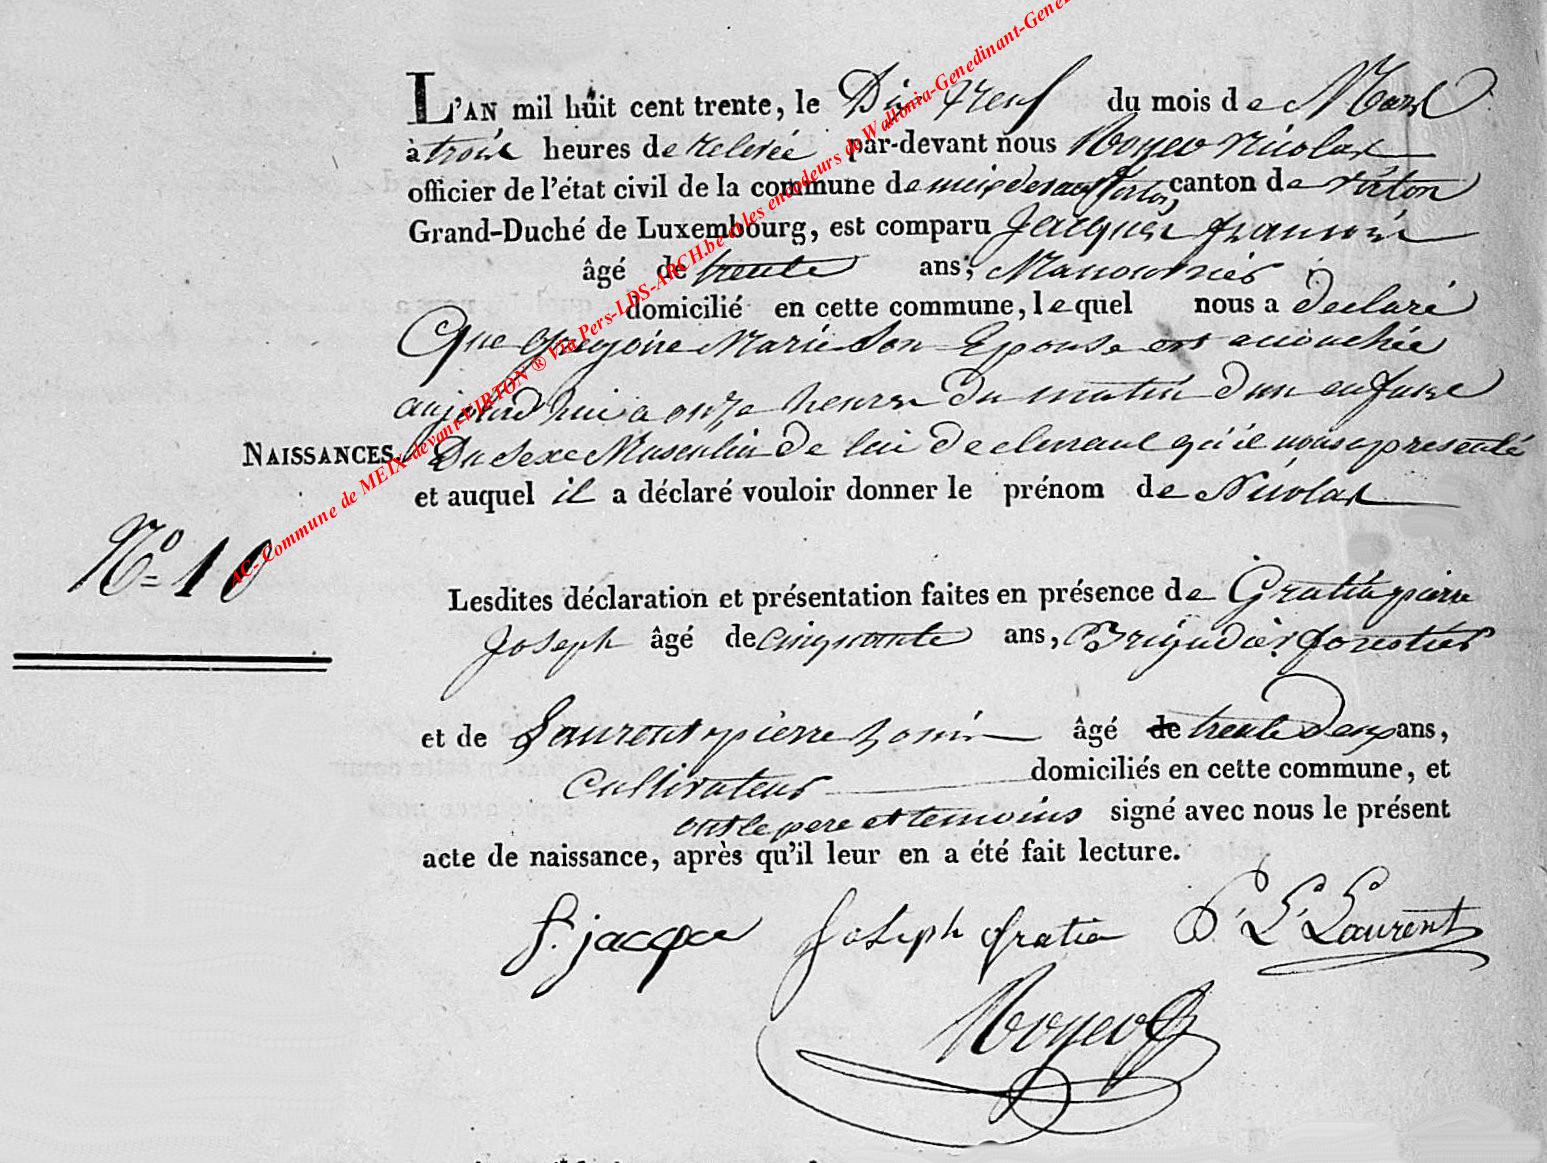 L'AN mil huit cent trente, le Dix neuf du mois de Mars
à trois heures de relevée par-devant nous Noyer Nicolas
officier de l'état civil de la commune de meix devant virton, canton de virton
Grand-Duché de Luxembourg, est comparu Jacques francois
âgé de trente ans, Manouvrier
domicilié en cette commune, lequel nous a declaré
Que Gregoire Marie Son Epouse est accouchée
aujourd'hui a onze heures du matin d'un enfant
NAISSANCES. Du Sexe Masculin de lui declarant qu'il nous a presenté
et auquel il a déclaré vouloir donner le prénom de Nicolas
N° 10
Lesdites déclaration et présentation faites en présence de Gratia pierre
Joseph âgé de cinquante ans, Brigadier forestier
et de Laurent pierre âgé de trente deux ans,
Cultivateur domiciliés en cette commune, et
ont le pere et temoins signé avec nous le présent
acte de naissance, après qu'il leur en a été fait lecture.
f. jacque Joseph Gratia P. L. Laurent
Noyer
AC- Commune de MEIX-devant-VIRTON ® Via Pers-LDS-ARCH.be et les encodeurs de Wallonia-Genedinant-Gene